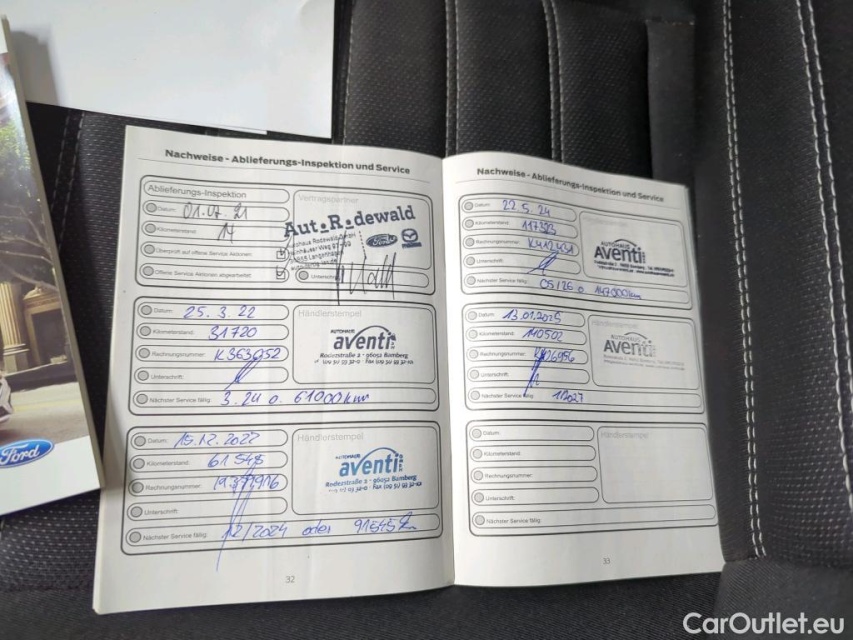 Nachweise - Ablieferungs-Inspektion und Service
Ablieferungs-Inspektion
Datum: 01.07.21
Kilometerstand: 14
Überprüft auf offene Service Aktionen:
Offene Service Aktionen abgearbeitet:
Vertragspartner
Aut R dewald
Autohaus Rodewald GmbH
Ford
mazda
Unterschrift
Datum: 25.3.22
Kilometerstand: 31720
Rechnungsnummer: K363952
Unterschrift:
Nächster Service fällig: 3.24 o. 61000km
Händlerstempel
AUTOHAUS
aventi
Rodezstraße 2 - 96052 Bamberg
Datum: 15.12.2022
Kilometerstand: 61545
Rechnungsnummer:
Unterschrift:
Nächster Service fällig: 12/2024 oder 91545
Händlerstempel
AUTOHAUS
aventi
Rodezstraße 2 - 96052 Bamberg
32
Nachweise - Ablieferungs-Inspektion und Service
Datum: 22.5.24
Kilometerstand:
Rechnungsnummer:
Unterschrift:
Nächster Service fällig: 05/26 o 147000km
AUTOHAUS
aventi
Datum: 13.01.2025
Kilometerstand: 110502
Rechnungsnummer:
Unterschrift:
Nächster Service fällig: 1/2027
Händlerstempel
AUTOHAUS
aventi
Datum:
Kilometerstand:
Rechnungsnummer:
Unterschrift:
Nächster Service fällig:
Händlerstempel
33
Ford
CarOutlet.eu